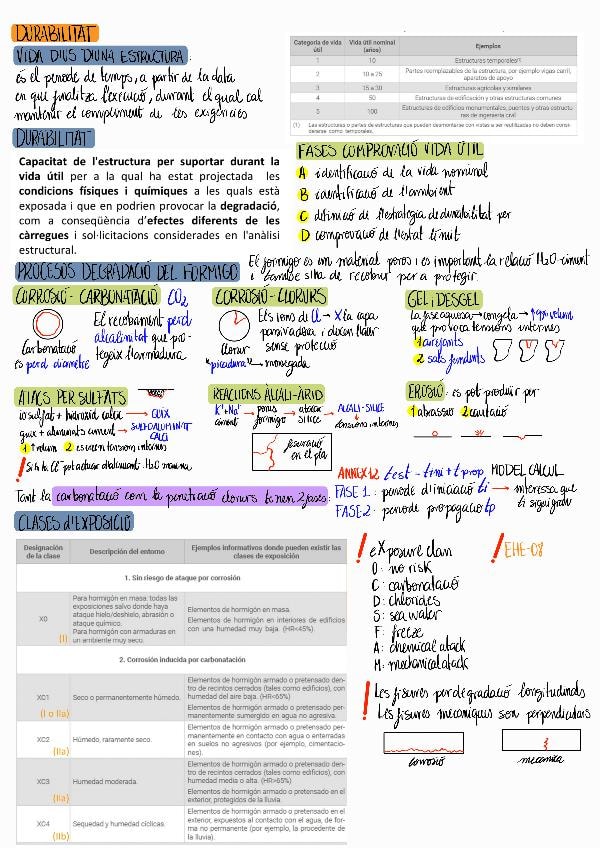 DURABILITAT
VIDA ÚTIL D'UNA ESTRUCTURA:
és el període de temps, a partir de la data
en què finalitza l'execució, durant el qual cal
mantenir el compliment de les exigències
Categoría de vida útil | Vida útil nominal (años) | Ejemplos
1 | 10 | Estructuras temporales(1)
2 | 10 a 25 | Partes reemplazables de la estructura, por ejemplo vigas carril, aparatos de apoyo
3 | 15 a 30 | Estructuras agrícolas y similares
4 | 50 | Estructuras de edificación y otras estructuras comunes
5 | 100 | Estructuras de edificios monumentales, puentes y otras estructuras de ingeniería civil
(1) Las estructuras o partes de estructuras que pueden desmontarse con vistas a ser reutilizadas no deben considerarse como temporales.
DURABILITAT
Capacitat de l'estructura per suportar durant la
vida útil per a la qual ha estat projectada les
condicions físiques i químiques a les quals està
exposada i que en podrien provocar la degradació,
com a conseqüència d'efectes diferents de les
càrregues i sol·licitacions considerades en l'anàlisi
estructural.
FASES COMPROVACIÓ VIDA ÚTIL
A identificació de la vida nominal
B identificació de l'ambient
C definició de l'estratègia de durabilitat per
D comprovació de l'estat límit
PROCESOS DEGRADACIÓ DEL FORMIGÓ
El formigó es un material porós i es important la relació H2O-ciment
i també s'ha de recobrir per a protegir.
CORROSIÓ - CARBONATACIÓ CO2
El recobriment perd
alcalinitat que protegeix l'armadura
Carbonatació
és perd diàmetre
CORROSIÓ - CLORURS
Els ions de Cl → X la capa
passivadora i deixen l'acer
sense protecció
Clorur
"picadura" → mossegada
GEL i DESGEL
La fase aquosa → congela → ↑ volum
que provoca tensions internes
1 airejants
2 sals fundents
ATACS PER SULFATS
io sulfat + hidroxid calcic → GUIX
guix + aluminats ciment → SULFOALUMINAT CALCI
1 ↑ volum 2 es creen tensions internes
! Si hi ha Cl- pot actuar d'atenuant. H2O marina
REACCIONS ÀLCALI-ÀRID
K+ Na+ ciment → porus formigó → atacar sílice → ALCALI-SILICE tensions internes
fissuració
en el pla
EROSIÓ: es pot produir per:
1 abrassió 2 cavitació
Tant la carbonatació com la penetració clorurs tenen 2 fases:
ANNEX 12 test = tini + tprop MODEL CALCUL
FASE 1: periode d'iniciació ti → interessa que
sigui gran
FASE 2: periode propagació tp
CLASES d'EXPOSICIÓ
Designación de la clase | Descripción del entorno | Ejemplos informativos donde pueden existir las clases de exposición
1. Sin riesgo de ataque por corrosión
X0 (I) | Para hormigón en masa: todas las exposiciones salvo donde haya ataque hielo/deshielo, abrasión o ataque químico. Para hormigón con armaduras en un ambiente muy seco. | Elementos de hormigón en masa. Elementos de hormigón en interiores de edificios con una humedad muy baja. (HR<45%).
2. Corrosión inducida por carbonatación
XC1 (I o IIa) | Seco o permanentemente húmedo. | Elementos de hormigón armado o pretensado dentro de recintos cerrados (tales como edificios), con humedad del aire baja. (HR<65%) Elementos de hormigón armado o pretensado permanentemente sumergido en agua no agresiva.
XC2 (IIa) | Húmedo, raramente seco. | Elementos de hormigón armado o pretensado permanentemente en contacto con agua o enterradas en suelos no agresivos (por ejemplo, cimentaciones).
XC3 (IIa) | Humedad moderada. | Elementos de hormigón armado o pretensado dentro de recintos cerrados (tales como edificios), con humedad media o alta. (HR>65%) Elementos de hormigón armado o pretensado en el exterior, protegidos de la lluvia.
XC4 (IIb) | Sequedad y humedad cíclicas. | Elementos de hormigón armado o pretensado en el exterior, expuestos al contacto con el agua, de forma no permanente (por ejemplo, la procedente de la lluvia).
! eXposure class
O: no risk
C: carbonatació
D: chlorides
S: sea water
F: freeze
A: chemical attack
M: mechanical attack
! EHE-08
! Les fisures per degradació longitudinals
Les fisures mecàniques són perpendiculars
corrosió
mecànica